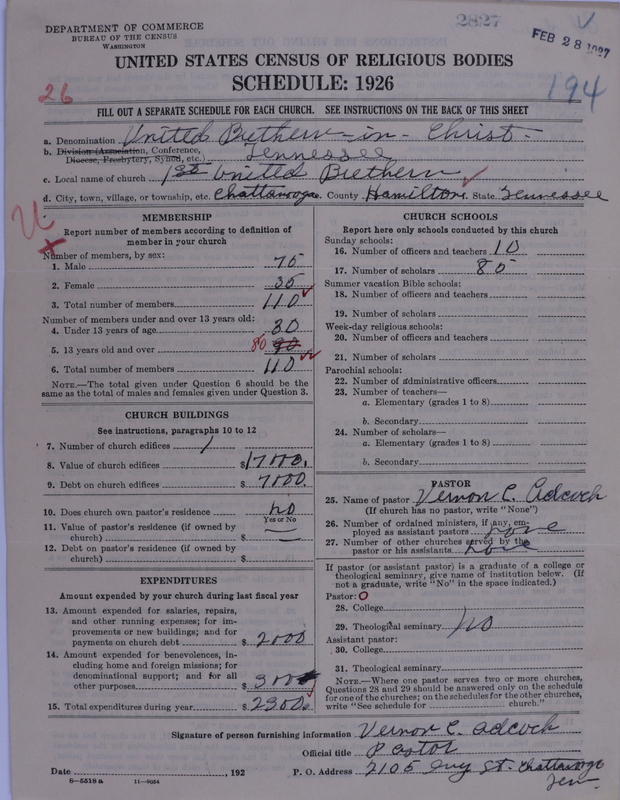 DEPARTMENT OF COMMERCE
BUREAU OF THE CENSUS
WASHINGTON
2827
FEB 28 1927
UNITED STATES CENSUS OF RELIGIOUS BODIES
SCHEDULE: 1926
26
194
FILL OUT A SEPARATE SCHEDULE FOR EACH CHURCH. SEE INSTRUCTIONS ON THE BACK OF THIS SHEET
a. Denomination United Brethern-in-Christ-
b. Division (Association, Conference, Diocese, Presbytery, Synod, etc.) Tennessee
c. Local name of church 1st United Brethern
d. City, town, village, or township, etc. Chattanooga County Hamilton State Tennessee
MEMBERSHIP
Report number of members according to definition of
member in your church
Number of members, by sex:
1. Male 75
2. Female 35
3. Total number of members 110
Number of members under and over 13 years old:
4. Under 13 years of age 30
5. 13 years old and over 80 90
6. Total number of members 110
NOTE.—The total given under Question 6 should be
same as the total of males and females given under Question 3.
CHURCH BUILDINGS
See instructions, paragraphs 10 to 12
7. Number of church edifices 1
8. Value of church edifices $17000.
9. Debt on church edifices $ 7000.
10. Does church own pastor's residence no
Yes or No
11. Value of pastor's residence (if owned by
church) $ —
12. Debt on pastor's residence (if owned by
church) $ —
EXPENDITURES
Amount expended by your church during last fiscal year
13. Amount expended for salaries, repairs,
and other running expenses; for im-
provements or new buildings; and for
payments on church debt $ 2000
14. Amount expended for benevolences, in-
cluding home and foreign missions; for
denominational support; and for all
other purposes $ 300
15. Total expenditures during year $ 2300
CHURCH SCHOOLS
Report here only schools conducted by this church
Sunday schools:
16. Number of officers and teachers 10
17. Number of scholars 85
Summer vacation Bible schools:
18. Number of officers and teachers
19. Number of scholars
Week-day religious schools:
20. Number of officers and teachers
21. Number of scholars
Parochial schools:
22. Number of administrative officers
23. Number of teachers—
a. Elementary (grades 1 to 8)
b. Secondary
24. Number of scholars—
a. Elementary (grades 1 to 8)
b. Secondary
PASTOR
25. Name of pastor Vernon C. Adcock
(If church has no pastor, write "None")
26. Number of ordained ministers, if any, em-
ployed as assistant pastors none
27. Number of other churches served by the
pastor or his assistants none
If pastor (or assistant pastor) is a graduate of a college or
theological seminary, give name of institution below. (If
not a graduate, write "No" in the space indicated.)
Pastor: O
28. College
29. Theological seminary No
Assistant pastor:
30. College
31. Theological seminary
NOTE.—Where one pastor serves two or more churches,
Questions 28 and 29 should be answered only on the schedule
for one of the churches; on the schedules for the other churches,
write "See schedule for church."
Signature of person furnishing information Vernon C. Adcock
Official title Pastor
Date , 192 P. O. Address 2105 Ivy St. Chattanooga
Ten-
8-5518 a 11-9054